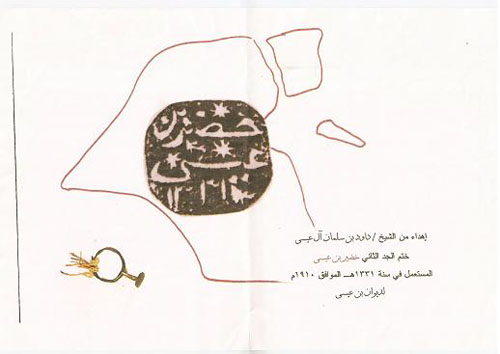 خضر بن
عيسى
١٣٣١
إهداء من الشيخ / داود بن سلمان آل عيسى
ختم الجد الثاني خضر بن عيسى
المستعمل في سنة ١٣٣١هـ الموافق ١٩١٠م
لديوان بن عيسى